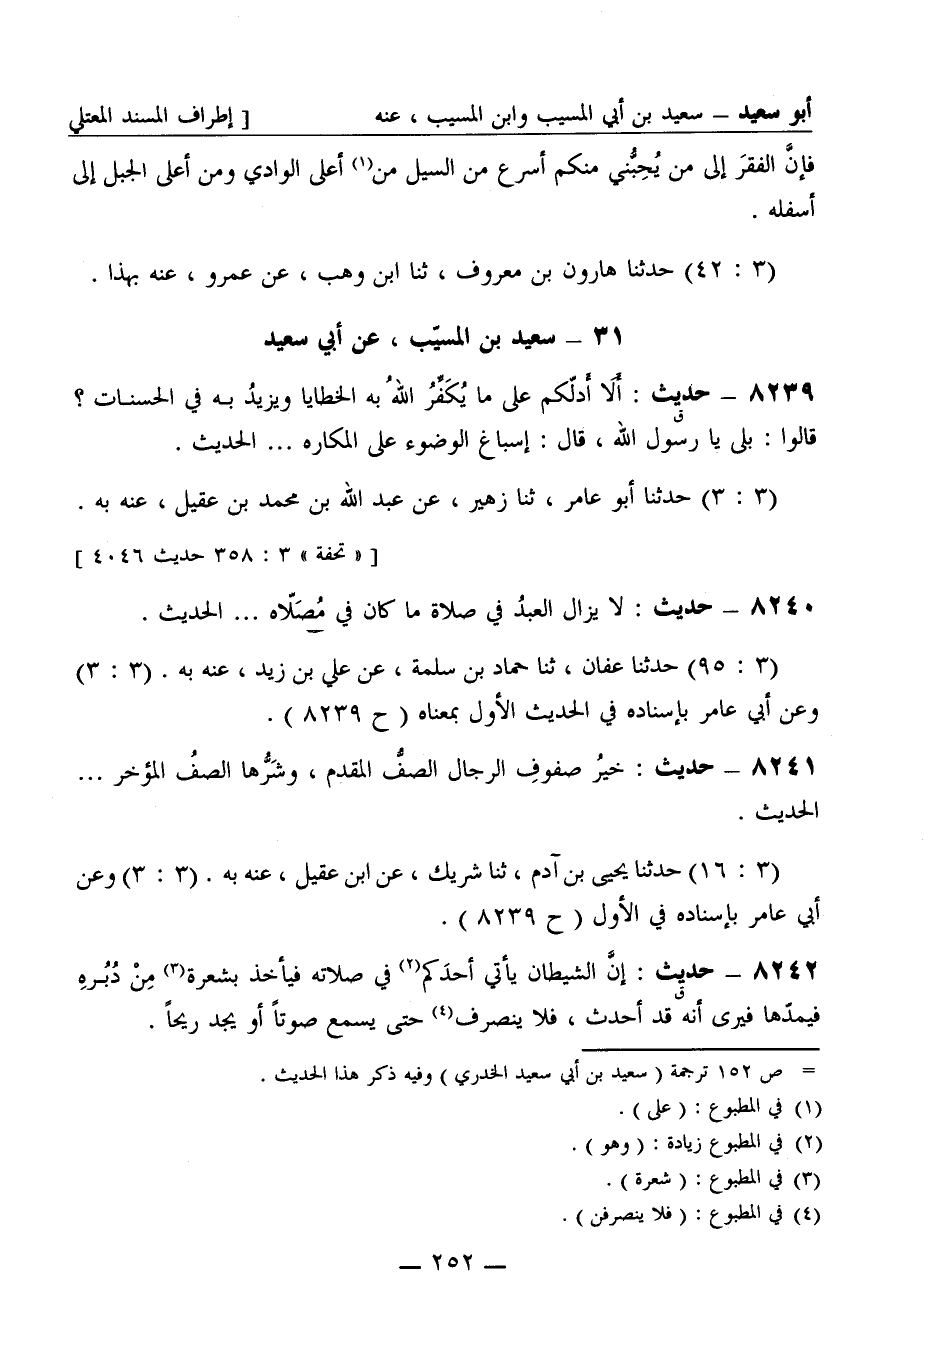 أبو سعيد – سعيد بن أبي المسيب وابن المسيب ، عنه [ إطراف المسند المعتلي
فإنَّ الفقرَ إلى من يُحِبُّني منكم أسرع من السيل من(١) أعلى الوادي ومن أعلى الجبل إلى
أسفله .
(٣ : ٤٢) حدثنا هارون بن معروف ، ثنا ابن وهب ، عن عمرو ، عنه بهذا .
٣١ – سعيد بن المسيّب ، عن أبي سعيد
٨٢٣٩ – حديث : أَلَا أَدلّكم على ما يُكَفِّرُ اللهُ به الخطايا ويزيدُ بـه في الحسنـات ؟
ق
قالوا : بلى يا رسول الله ، قال : إسباغ الوضوء على المكاره ... الحديث .
(٣ : ٣) حدثنا أبو عامر ، ثنا زهير ، عن عبد الله بن محمد بن عقيل ، عنه به .
[ « تحفة » ٣ : ٣٥٨ حديث ٤٠٤٦ ]
٨٢٤٠ – حديث : لا يزال العبدُ في صلاة ما كان في مُصَلّاه ... الحديث .
(٣ : ٩٥) حدثنا عفان ، ثنا حماد بن سلمة ، عن علي بن زيد ، عنه به . (٣ : ٣)
وعن أبي عامر بإسناده في الحديث الأول بمعناه ( ح ٨٢٣٩ ) .
٨٢٤١ – حديث : خيرُ صفوفِ الرجال الصفُّ المقدم ، وشَرُّها الصفُ المؤخر ...
الحديث .
(٣ : ١٦) حدثنا يحيى بن آدم ، ثنا شريك ، عن ابن عقيل ، عنه به . (٣ : ٣) وعن
أبي عامر بإسناده في الأول ( ح ٨٢٣٩ ) .
٨٢٤٢ – حديث : إنَّ الشيطان يأتي أحدَكم(٢) في صلاته فيأخذ بشعرة(٣) مِنْ دُبُـرهِ
ق
فيمدّها فيرى أنه قد أحدث ، فلا ينصرف(٤) حتى يسمع صوتاً أو يجد ريحاً .
= ص ١٥٢ ترجمة ( سعيد بن أبي سعيد الخدري ) وفيه ذكر هذا الحديث .
(١) في المطبوع : ( على ) .
(٢) في المطبوع زيادة : ( وهو ) .
(٣) في المطبوع : ( شعرة ) .
(٤) في المطبوع : ( فلا ينصرفن ) .
– ٢٥٢ –